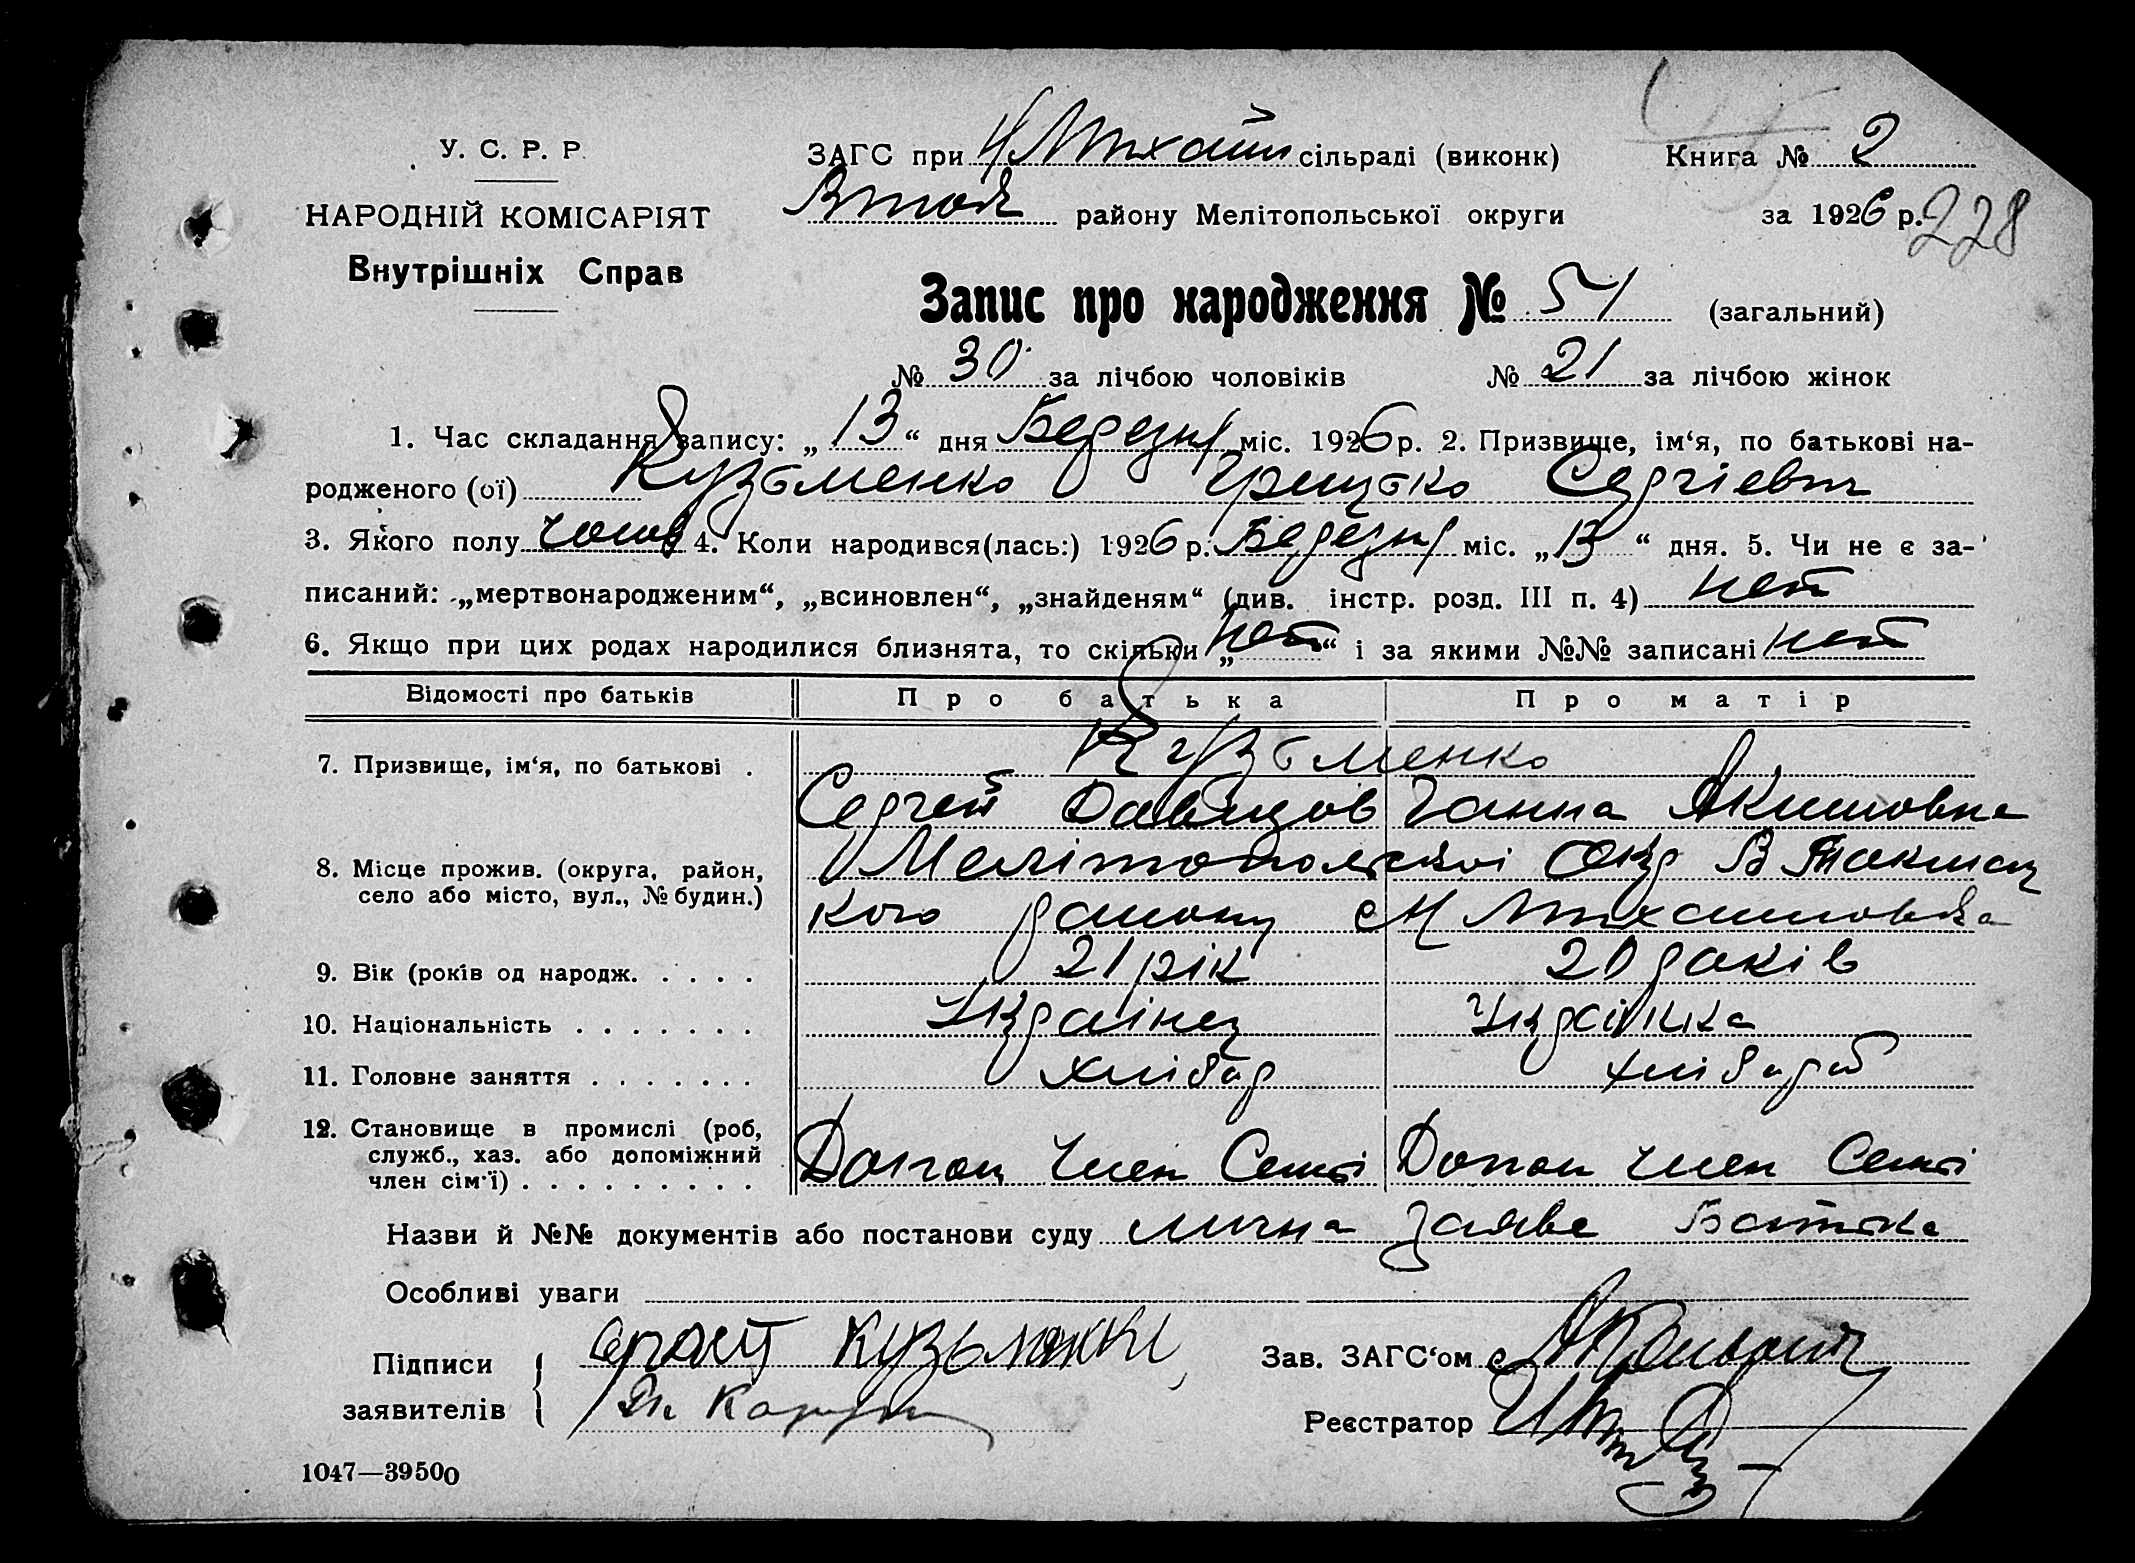 У. С. Р. Р.
НАРОДНІЙ КОМІСАРІЯТ
Внутрішніх Справ
ЗАГС при Н Михайл сільраді (виконк)
Книга № 2
Вток району Мелітопольської округи
за 1926 р.
228
Запис про народження № 51 (загальний)
№ 30 за лічбою чоловіків № 21 за лічбою жінок
1. Час складання запису: „13“ дня Березня міс. 1926 р. 2. Призвище, ім‘я, по батькові на-
родженого (ої) Кузьменко Грицько Сергієвич
3. Якого полу чолов 4. Коли народився(лась:) 1926 р. Березня міс. „13“ дня. 5. Чи не є за-
писаний: „мертвонародженим“, „всиновлен“, „знайденям“ (див. інстр. розд. III п. 4) нет
6. Якщо при цих родах народилися близнята, то скільки „нет“ і за якими №№ записані нет
Відомості про батьків Про батька Про матір
7. Призвище, ім‘я, по батькові . Кузьменко
Сергей Давидов Ганна Якимовна
8. Місце прожив. (округа, район, село або місто, вул., № будин.) Мелітопольскої Окр В Токмац
кого району с Н Михайловка
9. Вік (років од народж. . . . . 21 рік 20 років
10. Національність . . . . . . . Українец Українка
11. Головне заняття . . . . . . . хлібор хлібороб
12. Становище в промислі (роб, служб., хаз. або допоміжний член сім‘ї) . . . . . . . . . Допом член Семьі Допом член Семьі
Назви й №№ документів або постанови суду лична заява Батька
Особливі уваги
Підписи заявителів
Кузьменко
Зав. ЗАГС‘ом
Реєстратор
1047—39500